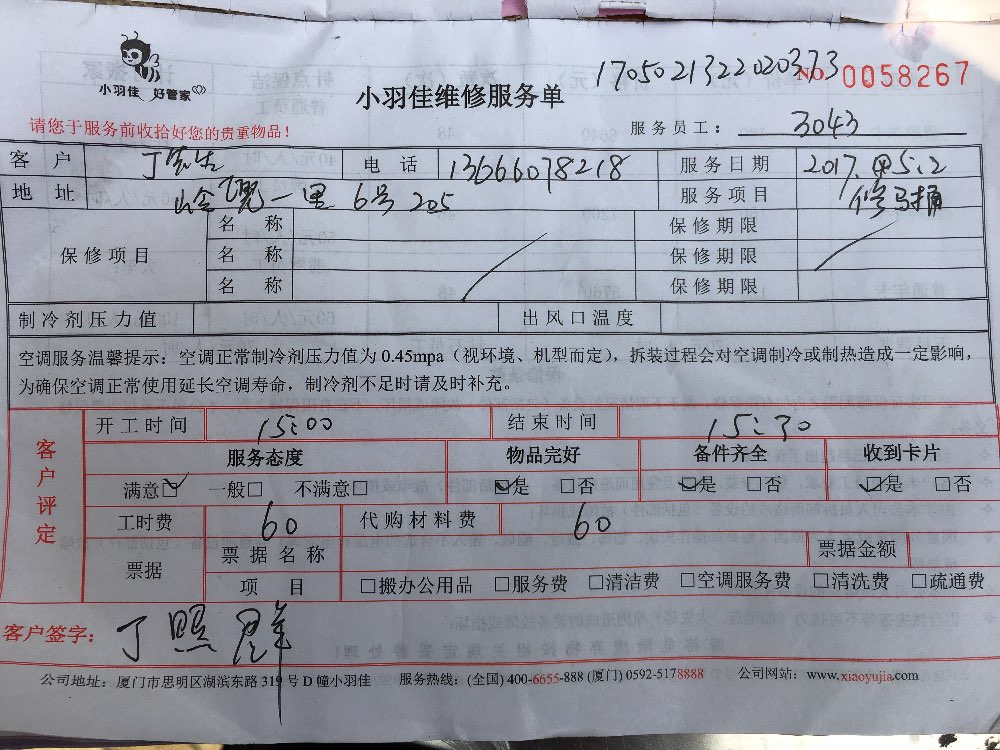 170502132202037​3
小羽佳 好管家
小羽佳维修服务单
NO. 0058267
请您于服务前收拾好您的贵重物品！
服务员工： 3043
客户 丁先生 电话 13666078218 服务日期 2017.5.2
地址 一里 6号 205 服务项目 修马桶
保修项目 名称 保修期限
名称 保修期限
名称 保修期限
制冷剂压力值 出风口温度
空调服务温馨提示：空调正常制冷剂压力值为 0.45mpa（视环境、机型而定），拆装过程会对空调制冷或制热造成一定影响，
为确保空调正常使用延长空调寿命，制冷剂不足时请及时补充。
客户评定
开工时间 15:00 结束时间 15:30
服务态度 物品完好 备件齐全 收到卡片
满意☑ 一般□ 不满意□ ☑是 □否 ☑是 □否 ☑是 □否
工时费 60 代购材料费 60
票据 票据名称 票据金额
项目 □搬办公用品 □服务费 □清洁费 □空调服务费 □清洗费 □疏通费
客户签字： 丁照群
公司地址：厦门市思明区湖滨东路 319 号 D 幢小羽佳 服务热线：(全国) 400-6655-888 (厦门) 0592-5178888 公司网站：www.xiaoyujia.com